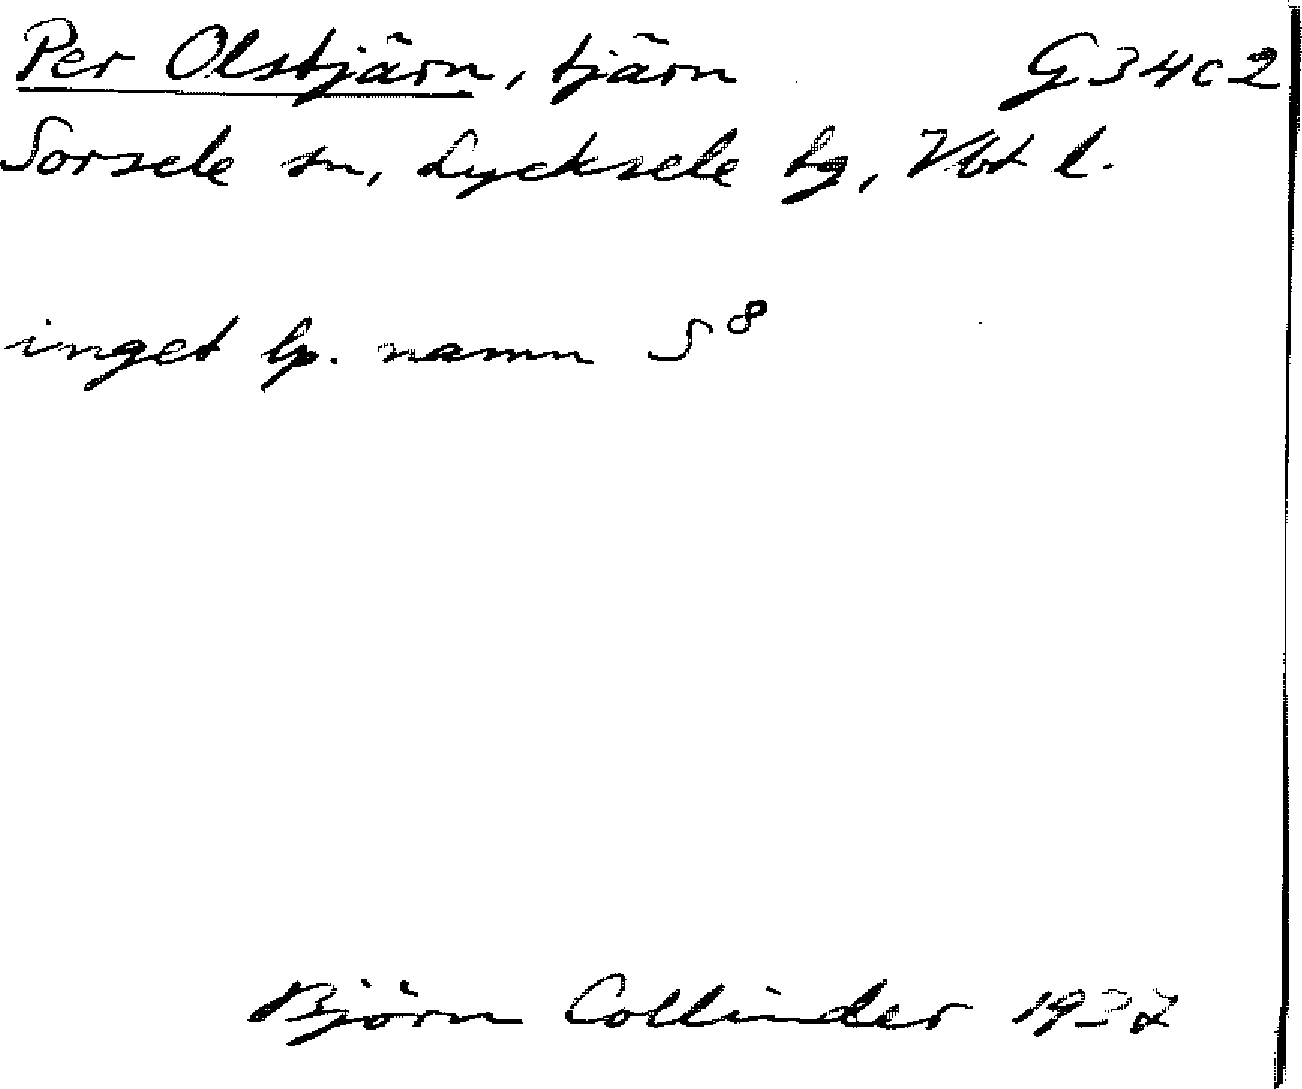 Per Olstjärn, tjärn G34c2
Sorsele sn, Lycksele lg, Vbt l.
inget lp. namn S⁸
Björn Collinder 1937